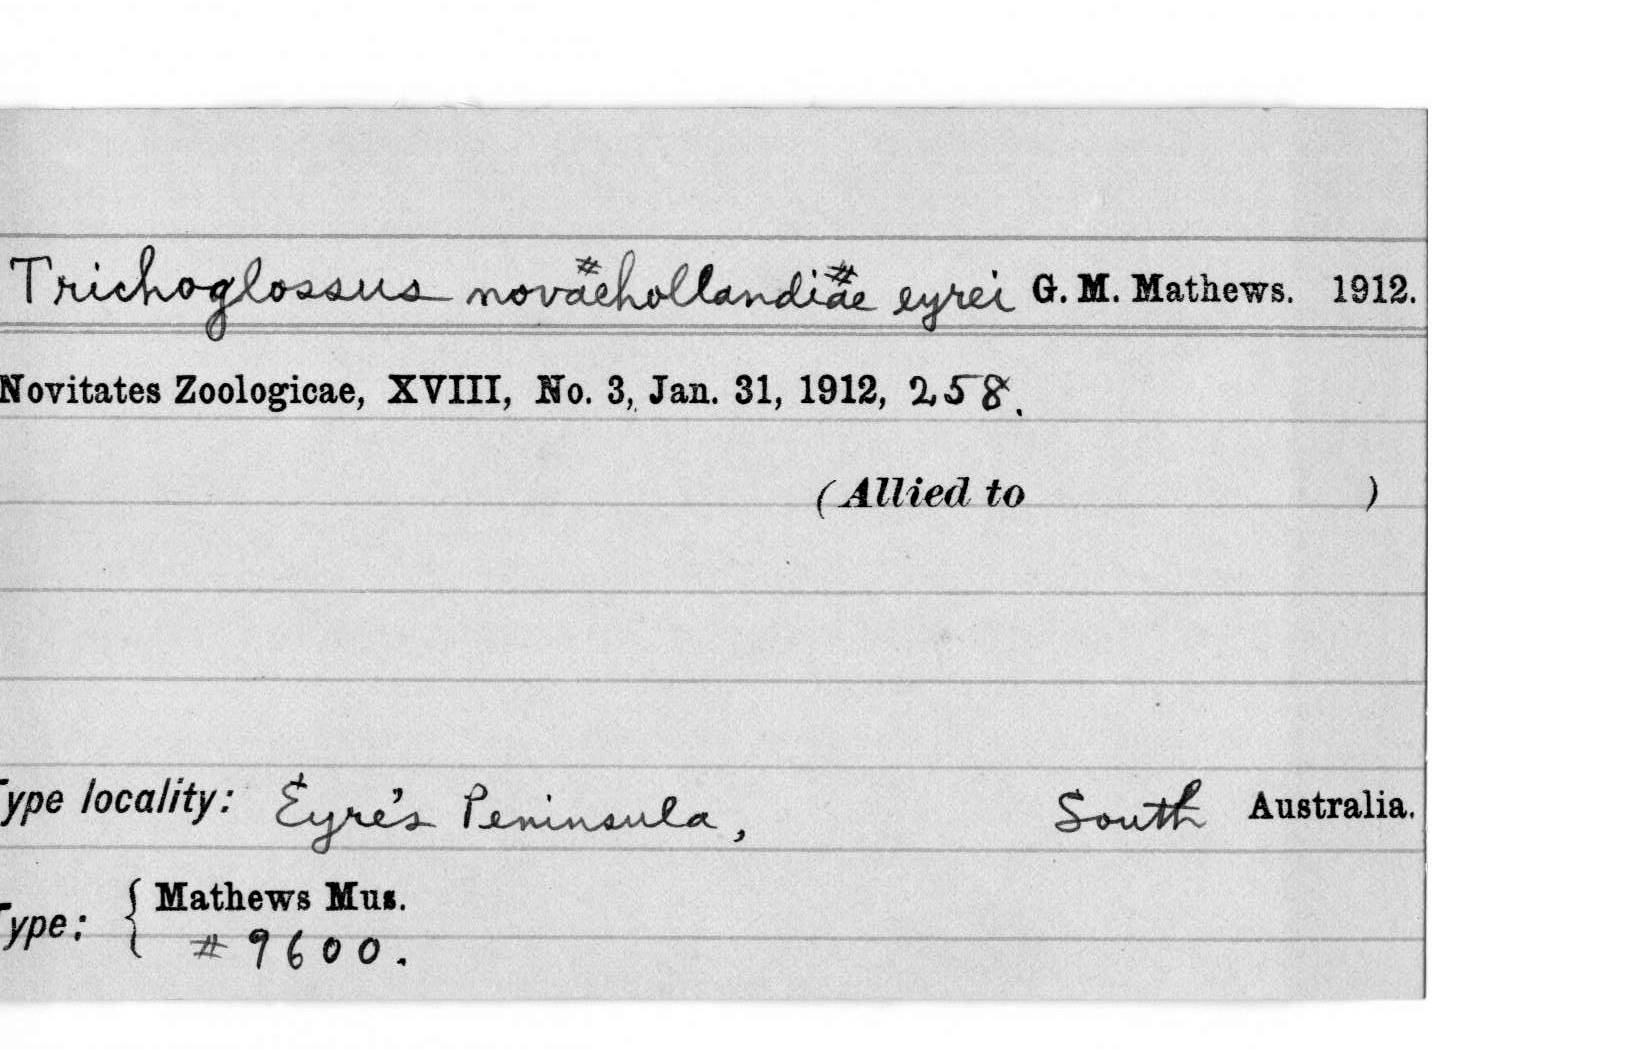 Trichoglossus novaehollandiae eyrei G. M. Mathews. 1912.
Novitates Zoologicae, XVIII, No. 3, Jan. 31, 1912, 258.
(Allied to )
Type locality: Eyre's Peninsula, South Australia.
Type: { Mathews Mus.
# 9600.